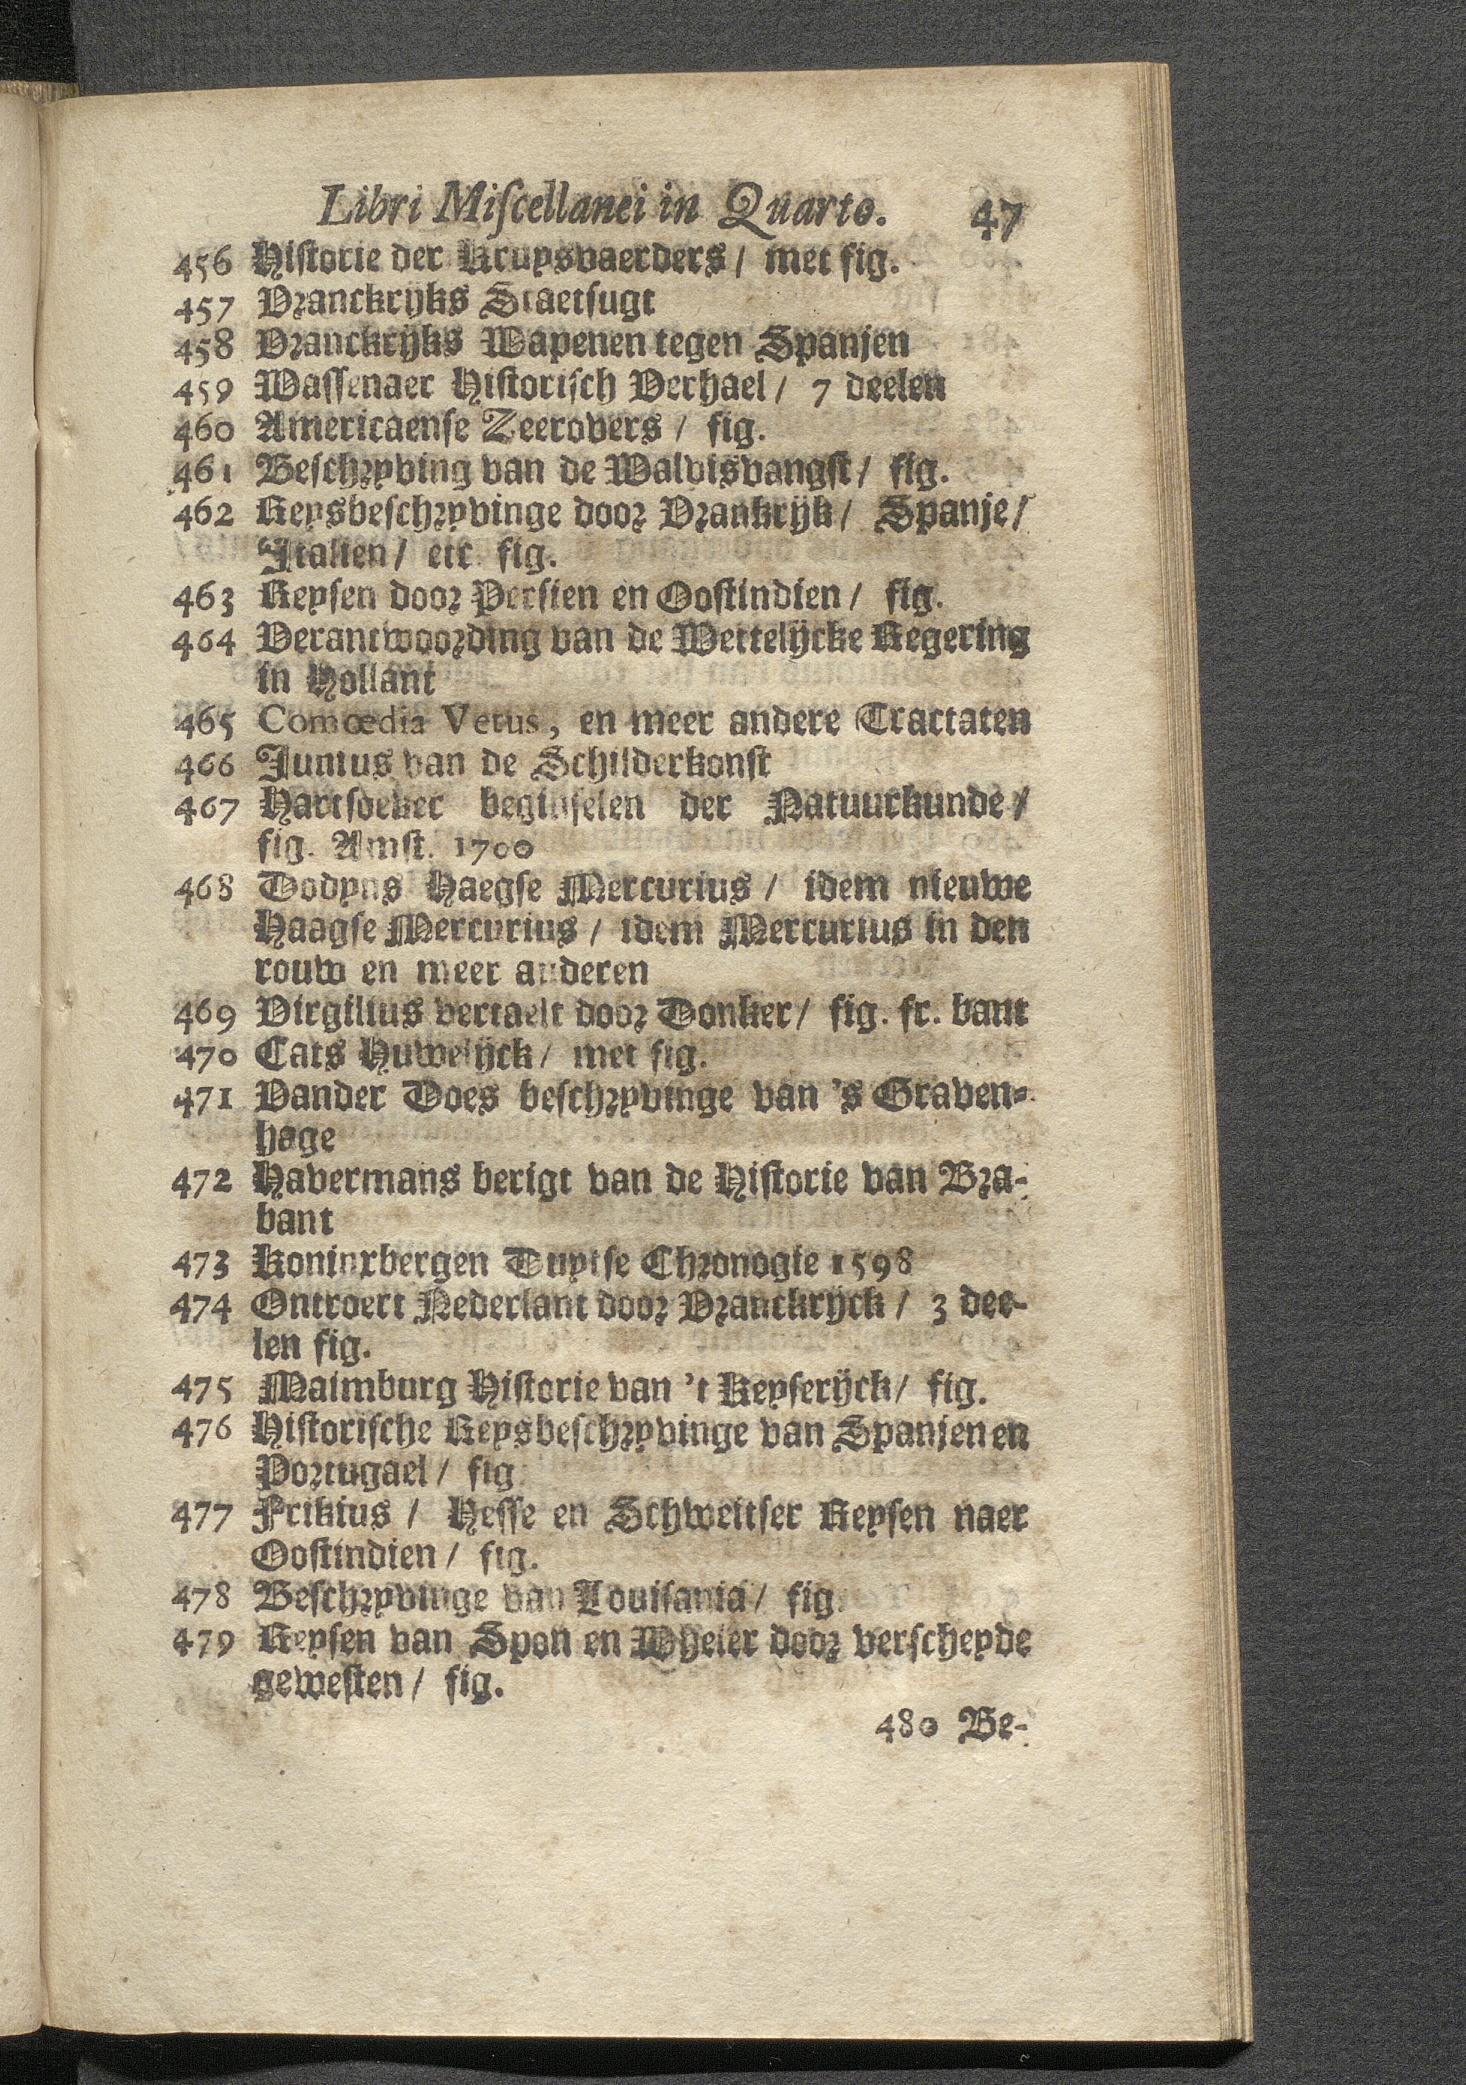 Libri Miſcellanei in Quarto. 47
456 Hiſtorie der Kruysvaerders / met fig.
457 Vranckrijks Staetſugt
458 Vranckrijks Wapenen tegen Spanjen
459 Waſſenaer Hiſtoriſch Verhael / 7 deelen
460 Americaenſe Zeerovers / fig.
461 Beſchryving van de Walvisvangſt / fig.
462 Reysbeſchryvinge door Vrankrijk / Spanje /
Italien / etc. fig.
463 Reyſen door Perſien en Ooſtindien / fig.
464 Verantwoording van de Wettelijcke Regering
in Hollant
465 Comœdia Vetus, en meer andere Tractaten
466 Junius van de Schilderkonſt
467 Hartſoeker beginſelen der Natuurkunde /
fig. Amſt. 1700
468 Dodyns Haegſe Mercurius / idem nieuwe
Haagſe Mercurius / idem Mercurius in den
rouw en meer anderen
469 Virgilius vertaelt door Donker / fig. fr. bant
470 Cats Huwelijck / met fig.
471 Vander Does beſchryvinge van 's Graven-
hage
472 Havermans berigt van de Hiſtorie van Bra-
bant
473 Koninxbergen Duytſe Chronogie 1598
474 Ontroert Nederlant door Vranckrijck / 3 dee-
len fig.
475 Maimburg Hiſtorie van 't Keyſerijck / fig.
476 Hiſtoriſche Reysbeſchryvinge van Spanjen en
Portugael / fig
477 Frikius / Heſſe en Schweitſer Reyſen naer
Ooſtindien / fig.
478 Beſchryvinge van Louiſania / fig.
479 Reyſen van Spon en Wheler door verſcheyde
geweſten / fig.
480 Be-